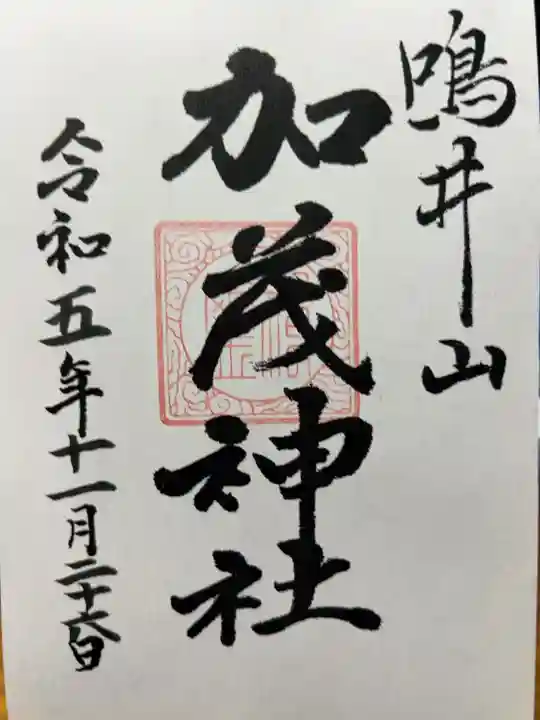 鳴井山
加茂神社
令和五年十一月二十六日